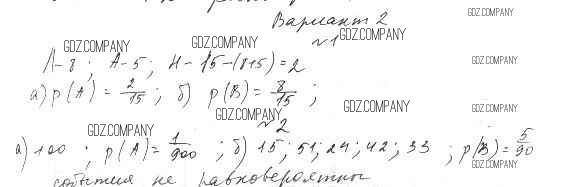 Вариант 2
GDZ.COMPANY
GDZ.COMPANY GDZ.COMPANY №1
Л-8 ; А-5 ; Н-15-(8+5)=2
GDZ.COMPANY
а) p(A) = 2/15 ; б) p(B) = 8/15 ;
GDZ.COMPANY GDZ.COMPANY GDZ.COMPANY
№2
GDZ.COMPANY GDZ.COMPANY
а) 100 ; p(A) = 1/900 ; б) 15; 51; 24; 42; 33 ; p(B) = 5/90
GDZ.COMPANY
события не равновероятны